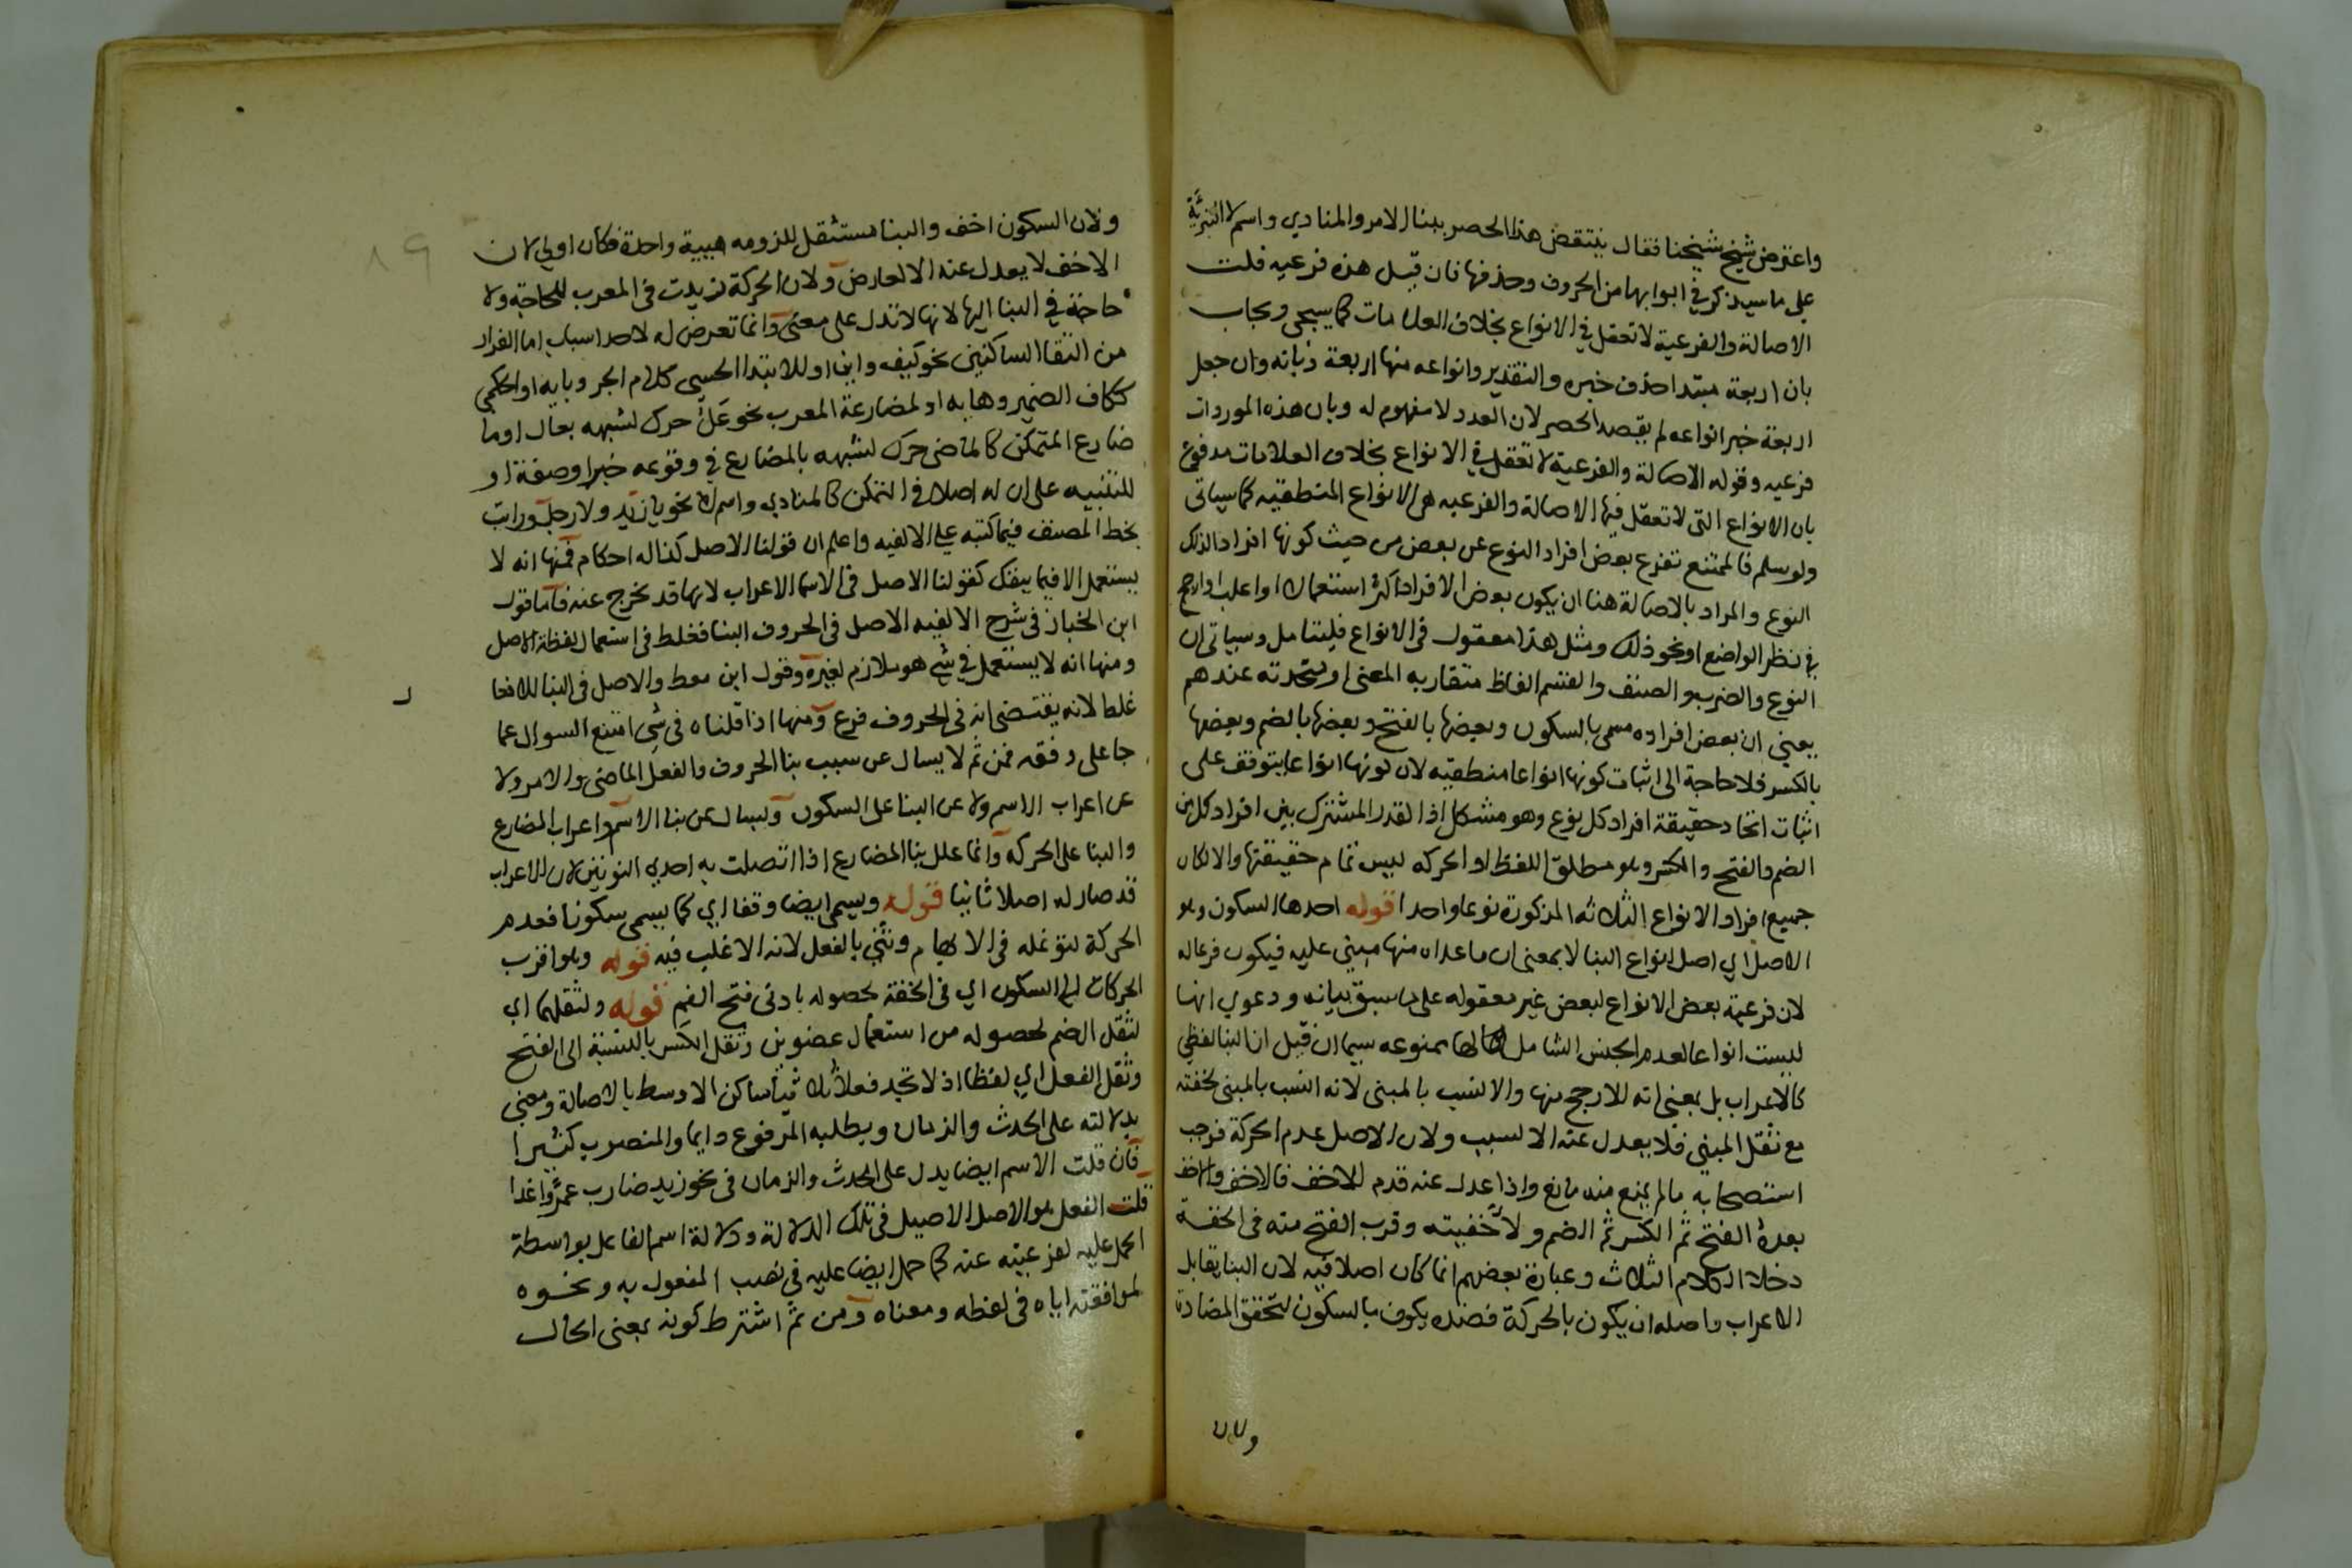 واعترض شيخ شيخنا فقال ينتقض هذا الحصر ببنا الامر والمنادي واسم لا التبرئة
على ما سيذكر في ابوابها من الحروف وحذفها فان قيل هذه فرعيه قلت
الاصالة والفرعية لا تعقل في الانواع بخلاف العلامات كما سيجي ويجاب
بان اربعة مبتدا حذف خبره والتقدير وانواعه منها اربعة وبانه وان جعل
اربعة خبر انواعه لم يقصد الحصر لان العدد لا مفهوم له وبان هذه الموردات
فرعيه وقوله الاصالة والفرعية لا تعقل في الانواع بخلاف العلامات مدفوع
بان الانواع التى لا تعقل فيها الاصالة والفرعيه هى الانواع المنطقيه كما سياتى
ولو سلم فالممتنع تفرع بعض افراد النوع عن بعض من حيث كونها افراد الذلك
النوع والمراد بالاصالة هنا ان يكون بعض الافراد اكثر استعمالا او اغلب او ارجح
في نظر الواضع او نحو ذلك ومثل هذا معقول فى الانواع فليتامل وسياتى ان
النوع والضرب والصنف والقسم الفاظ متقاربه المعنى او متحدته عندهم
يعنى ان بعض افراده مسمى بالسكون وبعضها بالفتح وبعضها بالضم وبعضها
بالكسر فلا حاجة الى اثبات كونها انواعا منطقيه لان كونها انواعا يتوقف على
اثبات اتحاد حقيقة افراد كل نوع وهو مشكل اذ القدر المشترك بين افراد كل من
الضم والفتح والكسر وهو مطلق اللفظ او الحركه ليس تمام حقيقتها والا لكان
جميع افراد الانواع الثلاثه المذكورة نوعا واحدا قوله احدها السكون وهو
الاصل اي اصل انواع البنا لا بمعنى ان ما عداه منها مبنى عليه فيكون فرعا له
لان فرعية بعض الانواع لبعض غير معقوله على ما سبق بيانه ودعوي انها
ليست انواعا لعدم الجنس الشامل لها ممنوعه سيما ان قيل ان البنا لفظي
كالاعراب بل بمعنى انه للارجح منها والانسب بالمبنى لانه انسب بالمبنى لخفته
مع ثقل المبنى فلا يعدل عنه الا لسبب ولان الاصل عدم الحركة فوجب
استصحابه ما لم يمنع منه مانع واذا عدل عنه قدم للاخف فالاخف والاخف
بعده الفتح ثم الكسر ثم الضم ولاخفيته وقرب الفتح منه فى الخفة
دخلا الكلام الثلاث وعبارة بعضهم انما كان اصلا فيه لان البنا يقابل
الاعراب واصله ان يكون بالحركة فضده يكون بالسكون لتحقق المضادة
ولان
ولان السكون اخف والبنا مستثقل للزومه هيية واحدة فكان اولى لان
الاخف لا يعدل عنه الا لعارض ولان الحركة زيدت فى المعرب للحاجة ولا
حاجة في البنا اليها لانها لا تدل على معنى وانما تعرض له لاحد اسباب اما الفرار
من التقا الساكنين نحو كيف واين او للابتدا الحسى كلام الجر وبايه او الحكمي
ككاف الضمير وهايه او لمضارعة المعرب نحو عَلُ حرك لشبهه بعال او ما
ضارع المتمكن كالماضى حرك لشبهه بالمضارع في وقوعه خبرا وصفة او
للتنبيه على ان له اصلا فى التمكن كالمنادي واسم لا نحو يا زيد ولا رجل ورايت
بخط المصنف فيما كتبه على الالفيه واعلم ان قولنا الاصل كذا له احكام فمنها انه لا
يستعمل الا فيما ينفك كقولنا الاصل فى الاسما الاعراب لانها قد تخرج عنه فاما قول
ابن الخباز فى شرح الالفيه الاصل فى الحروف البنا فغلط فى استعمال لفظة الاصل
ومنها انه لا يستعمل في شي هو ملازم لغيره وقول ابن معط والاصل فى البنا للافعا ل
غلط لانه يقتضى انه فى الحروف فرع ومنها اذا قلناه فى شى امتنع السوال عما
جا على وفقه فمن ثم لا يسال عن سبب بنا الحروف والفعل الماضى والامر ولا
عن اعراب الاسم ولا عن البنا على السكون ويسال عن بنا الاسم واعراب المضارع
والبنا على الحركه وانما علل بنا المضارع اذا اتصلت به احدي النونين لان الاعراب
قد صار له اصلا ثانيا قوله ويسمى ايضا وقفا اي كما يسمى سكونا فعدم
الحركة لتوغله فى الابهام وثنى بالفعل لانه الاغلب فيه قوله وهو اقرب
الحركات الى السكون اي فى الخفة لحصوله بادنى فتح الفم قوله ولثقلهما اي
لثقل الضم لحصوله من استعمال عضوين وثقل الكسر بالنسبة الى الفتح
وثقل الفعل اي لفظا اذ لا تجد فعلا ثلاثيا ساكن الاوسط بالاصالة ومعنى
بدلالته على الحدث والزمان ويطلبه المرفوع دايما والمنصوب كثيرا
فان قلت الاسم ايضا يدل على الحدث والزمان فى نحو زيد ضارب عمروا غدا
قلت الفعل هو الاصل الاصيل فى تلك الدلالة ودلالة اسم الفاعل بواسطة
الحمل عليه لفرعيته عنه كما حمل ايضا عليه فى نصب المفعول به ونحوه
لموافقته اياه فى لفظه ومعناه ومن ثم اشترط كونه بمعنى الحال